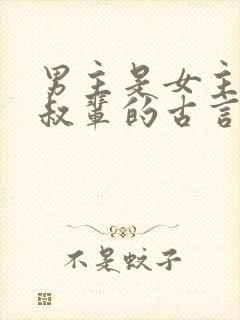 男主是女主
叔辈的古言
不是蚊子